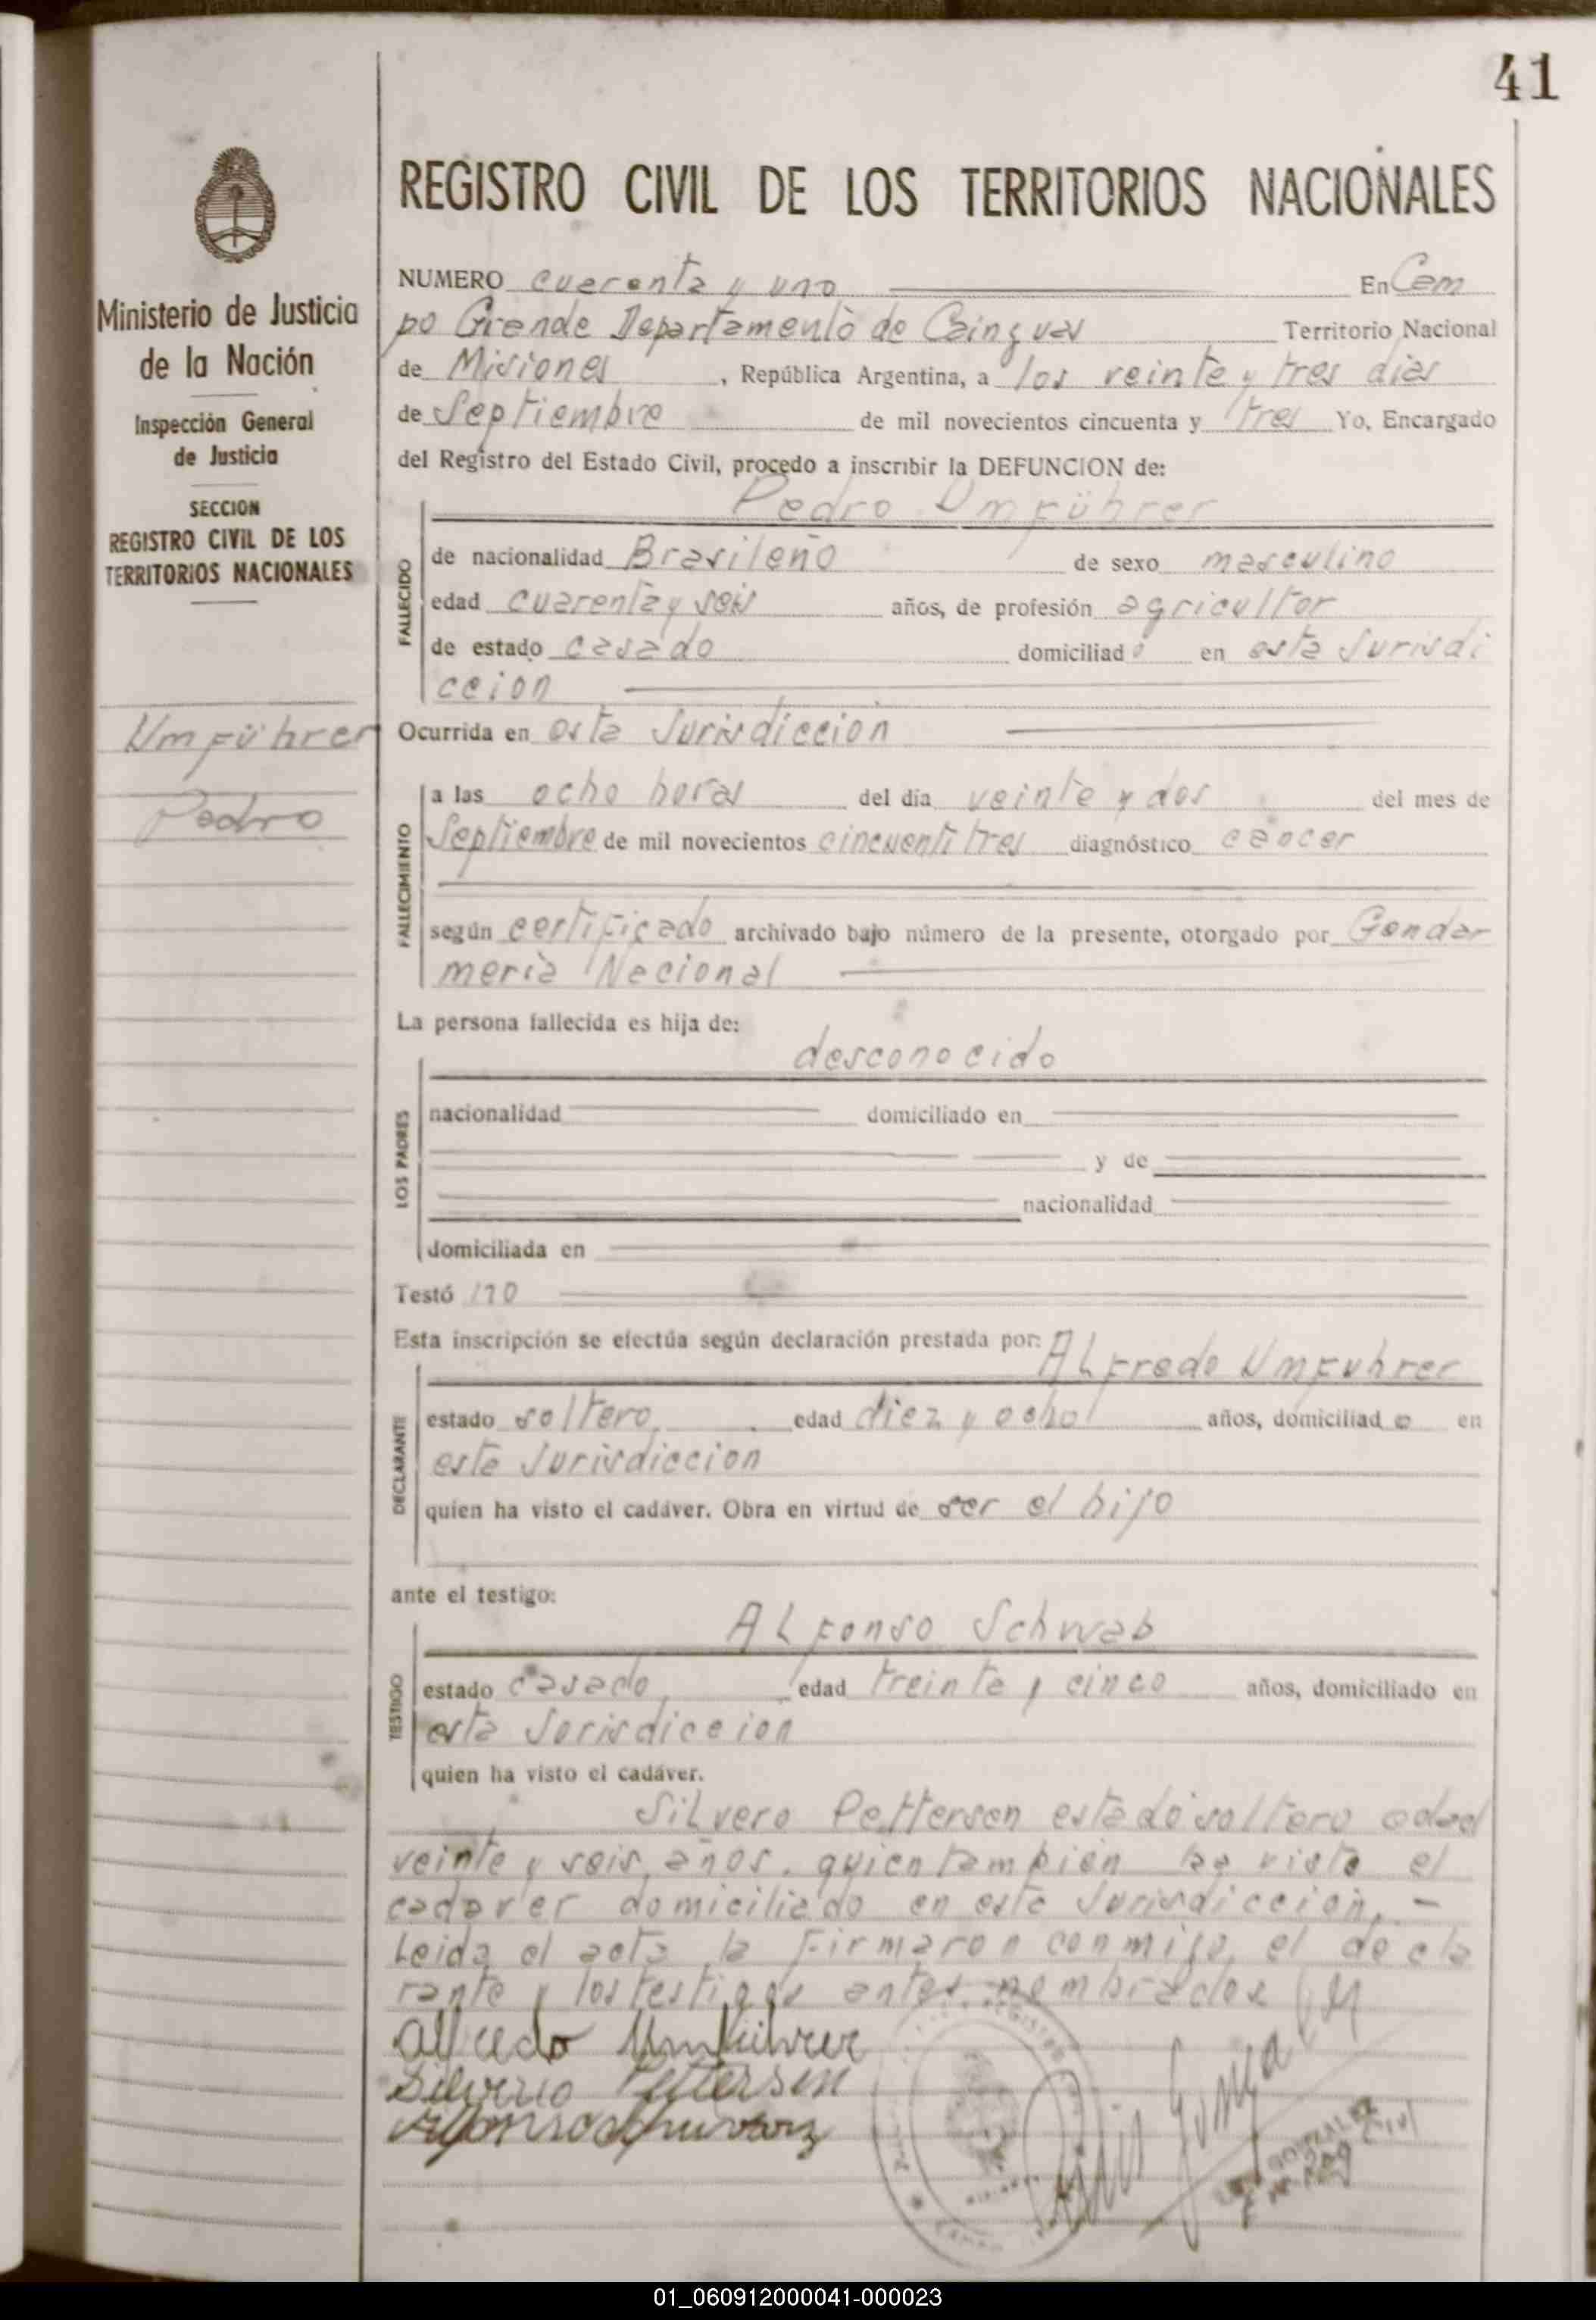 41
REGISTRO CIVIL DE LOS TERRITORIOS NACIONALES
Ministerio de Justicia
de la Nación
Inspección General
de Justicia
SECCION
REGISTRO CIVIL DE LOS
TERRITORIOS NACIONALES
Umführer
Pedro
NUMERO cuarenta y uno En Cam
po Grande Departamento de Cainguas Territorio Nacional
de Misiones, República Argentina, a los veinte y tres dias
de Septiembre de mil novecientos cincuenta y tres Yo, Encargado
del Registro del Estado Civil, procedo a inscribir la DEFUNCION de:
Pedro Umführer
FALLECIDO
de nacionalidad Brasileño de sexo masculino
edad cuarenta y seis años, de profesión agricultor
de estado casado domiciliado en esta Jurisdi
ccion
Ocurrida en esta Jurisdiccion
FALLECIMIENTO
a las ocho horas del día veinte y dos del mes de
Septiembre de mil novecientos cincuentitres diagnóstico cancer
según certificado archivado bajo número de la presente, otorgado por Gendar
meria Nacional
La persona fallecida es hija de:
desconocido
LOS PADRES
nacionalidad domiciliado en
y de
nacionalidad
domiciliada en
Testó no
Esta inscripción se efectúa según declaración prestada por: ALfredo Umfuhrer
DECLARANTE
estado soltero, edad diez y ocho años, domiciliado en
esta Jurisdiccion
quien ha visto el cadáver. Obra en virtud de ser el hijo
ante el testigo:
ALfonso Schwab
TESTIGO
estado casado, edad treinta y cinco años, domiciliado en
esta Jorisdiccion
quien ha visto el cadáver.
SiLvero Pettersen estado soltero edad
veinte y seis años. quien tampien ha visto el
cadaver domiciliado en esta Jurisdiccion. -
Leida el acta la Firmaron conmigo, el decla
rante y los testigos antes nombrados
Alfredo Umführer
Silverio Pettersen
Luis Gonzalez
LUIS GONZALEZ
01_060912000041-000023